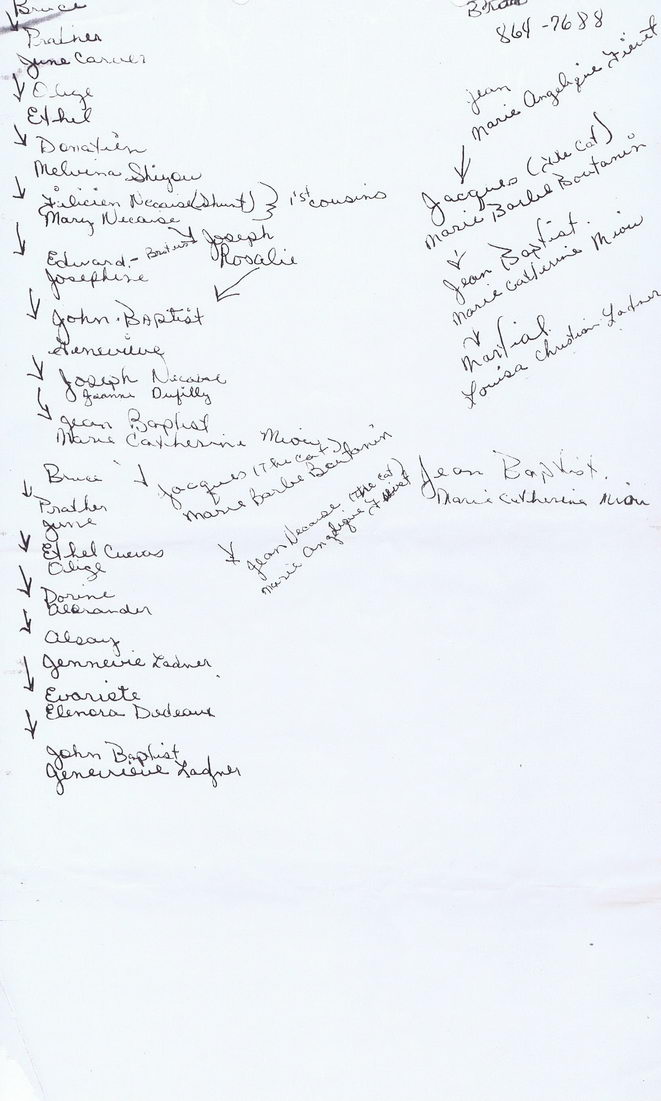 Bruce
Prather
June Carver
Olize
Ethel
Donatien
Melvina Shiyou
Filicien Necaise (Shunt) } 1st cousins
Mary Necaise
Edward - Brother Joseph
Josephine Rosalie
John Baptist
Genevieve
Joseph Necaise
Jeanne Dufilly
Jean Baptist
Marie Catherine Miou
Jacques (The Cat)
Marie Barbe Boutanin
Jean Necaise (The Cat)
Marie Angelique Fievet
Bruce
Prather
June
Ethel Cuevas
Olize
Dorine
Alexander
Alsay
Jennevie Ladner
Evariste
Elenora Dedeaux
John Baptist
Genevieve Ladner
864-7688
Jean
Marie Angelique Fievet
Jacques (The Cat)
Marie Barbe Boutanin
Jean Baptist
Marie Catherine Miou
Martial
Louisa Christian Ladner
Jean Baptist.
Marie Catherine Miou